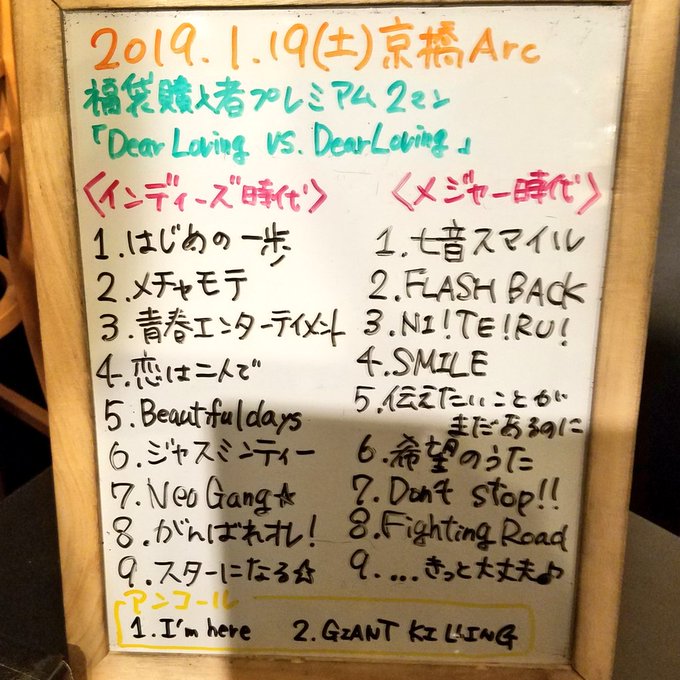 2019.1.19(土)京橋Arc
福袋購入者プレミアム2マン
「Dear Loving vs. Dear Loving」
〈インディーズ時代〉
1.はじめの一歩
2.メチャモテ
3.青春エンターテイメント
4.恋は二人で
5.Beautiful days
6.ジャスミンティー
7.Neo Gang☆
8.がんばれオレ!
9.スターになる☆
〈メジャー時代〉
1.七音スマイル
2.FLASH BACK
3.NI!TE!RU!
4.SMILE
5.伝えたいことが
まだあるのに
6.希望のうた
7.Don't stop!!
8.Fighting Road
9....きっと大丈夫♪
アンコール
1.I'm here 2.GIANT KILLING